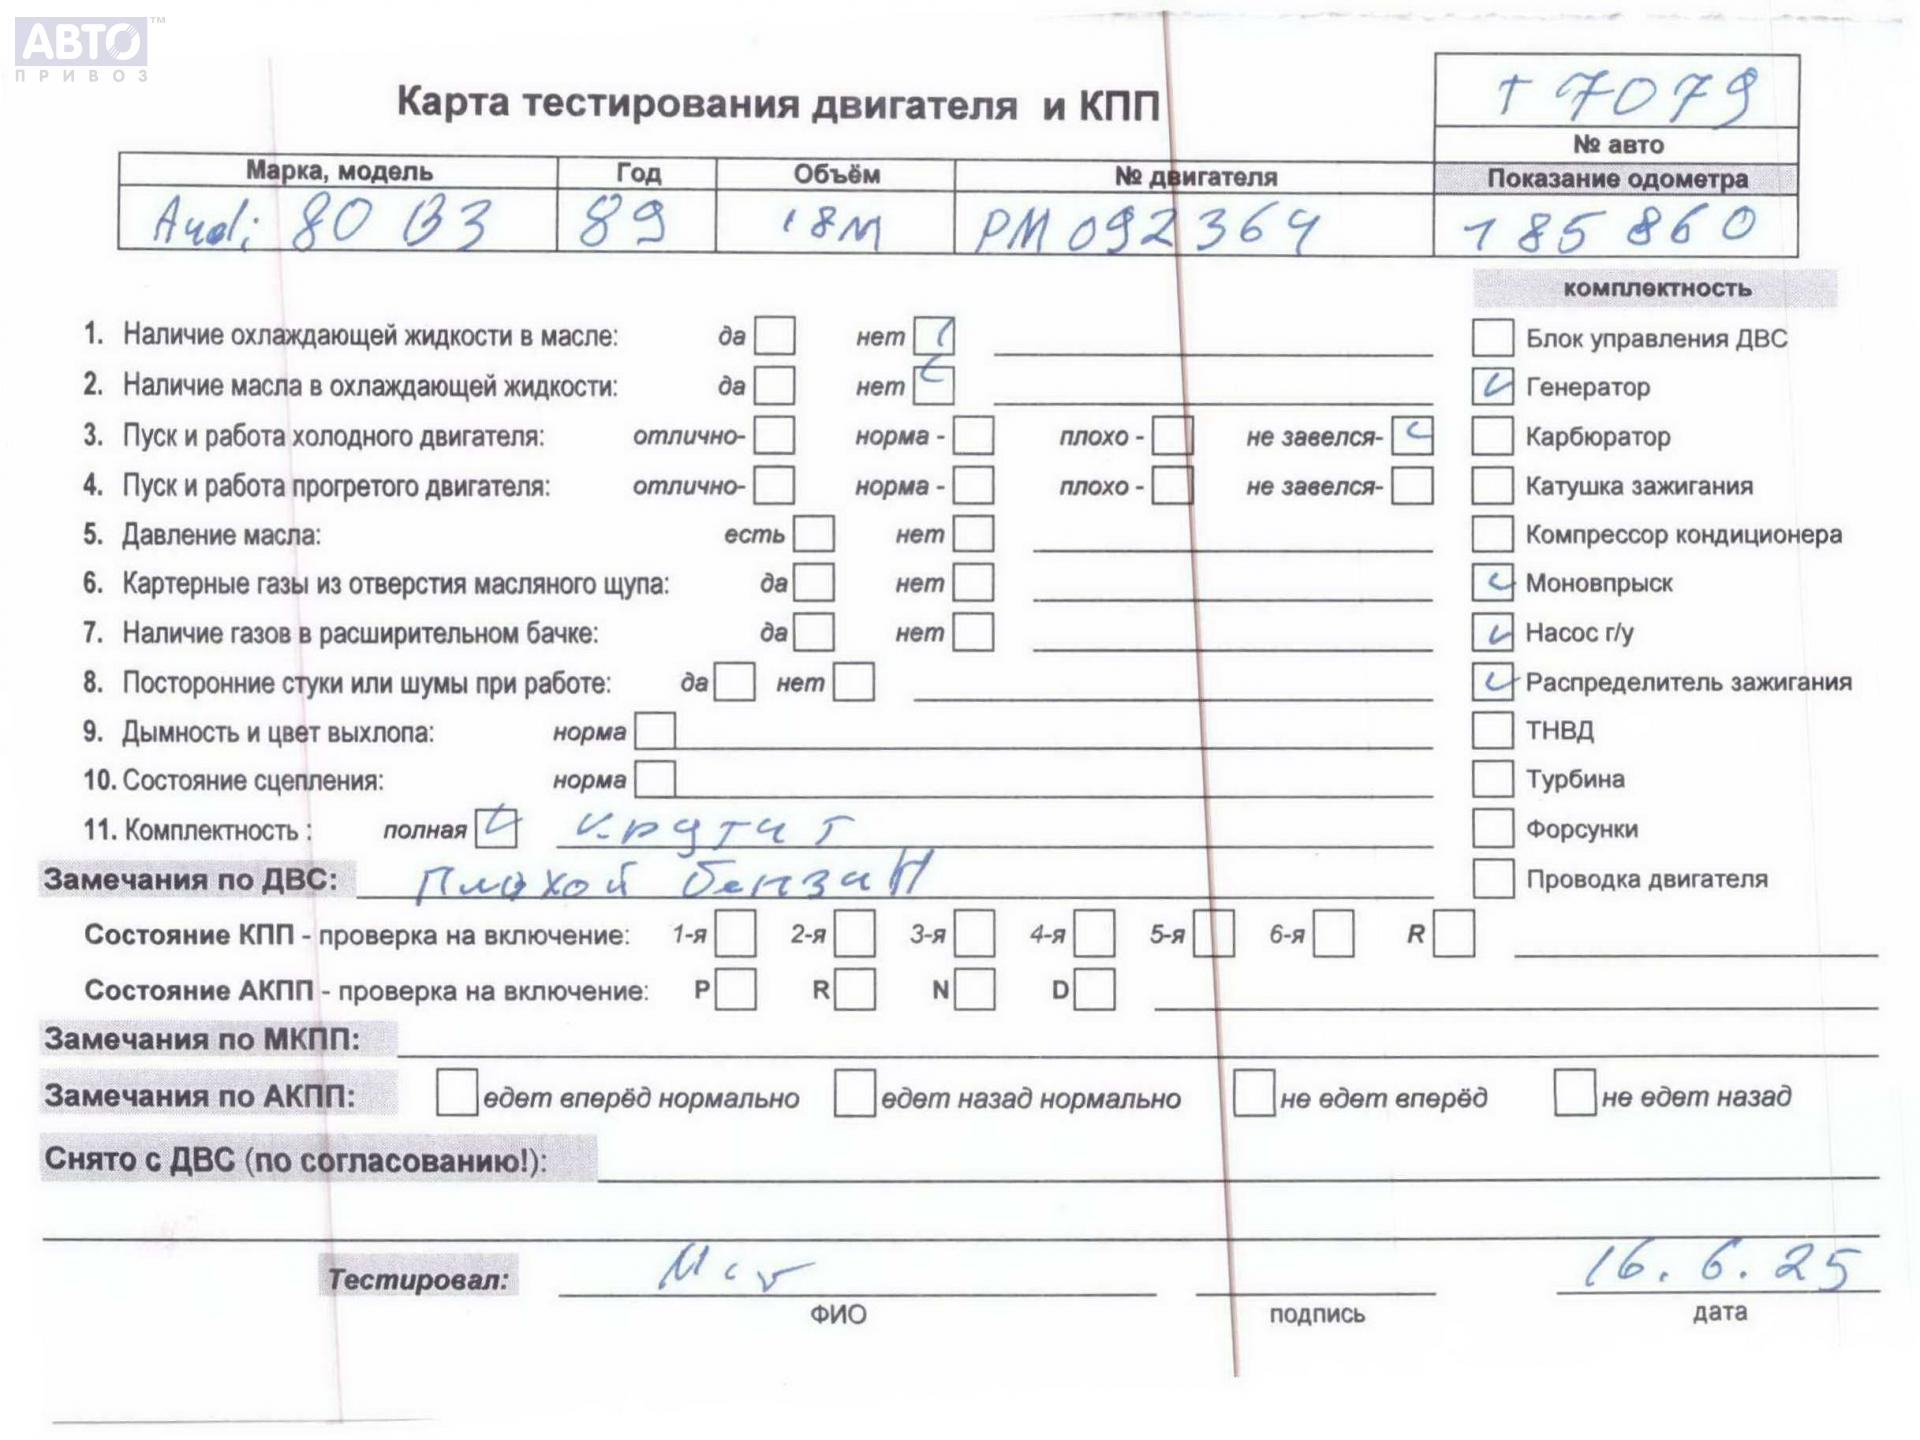 АВТО™
ПРИВОЗ
Карта тестирования двигателя и КПП
т 7079
№ авто
Марка, модель Год Объём № двигателя Показание одометра
Audi 80 B3 89 1 8м РМ 092364 185 860
комплектность
1. Наличие охлаждающей жидкости в масле: да нет Блок управления ДВС
2. Наличие масла в охлаждающей жидкости: да нет Генератор
3. Пуск и работа холодного двигателя: отлично- норма - плохо - не завелся- Карбюратор
4. Пуск и работа прогретого двигателя: отлично- норма - плохо - не завелся- Катушка зажигания
5. Давление масла: есть нет Компрессор кондиционера
6. Картерные газы из отверстия масляного щупа: да нет Моновпрыск
7. Наличие газов в расширительном бачке: да нет Насос г/у
8. Посторонние стуки или шумы при работе: да нет Распределитель зажигания
9. Дымность и цвет выхлопа: норма ТНВД
10. Состояние сцепления: норма Турбина
11. Комплектность : полная крутит Форсунки
Замечания по ДВС: Плохой бензин Проводка двигателя
Состояние КПП - проверка на включение: 1-я 2-я 3-я 4-я 5-я 6-я R
Состояние АКПП - проверка на включение: P R N D
Замечания по МКПП:
Замечания по АКПП: едет вперёд нормально едет назад нормально не едет вперёд не едет назад
Снято с ДВС (по согласованию!):
Тестировал: 16.6.25
ФИО подпись дата